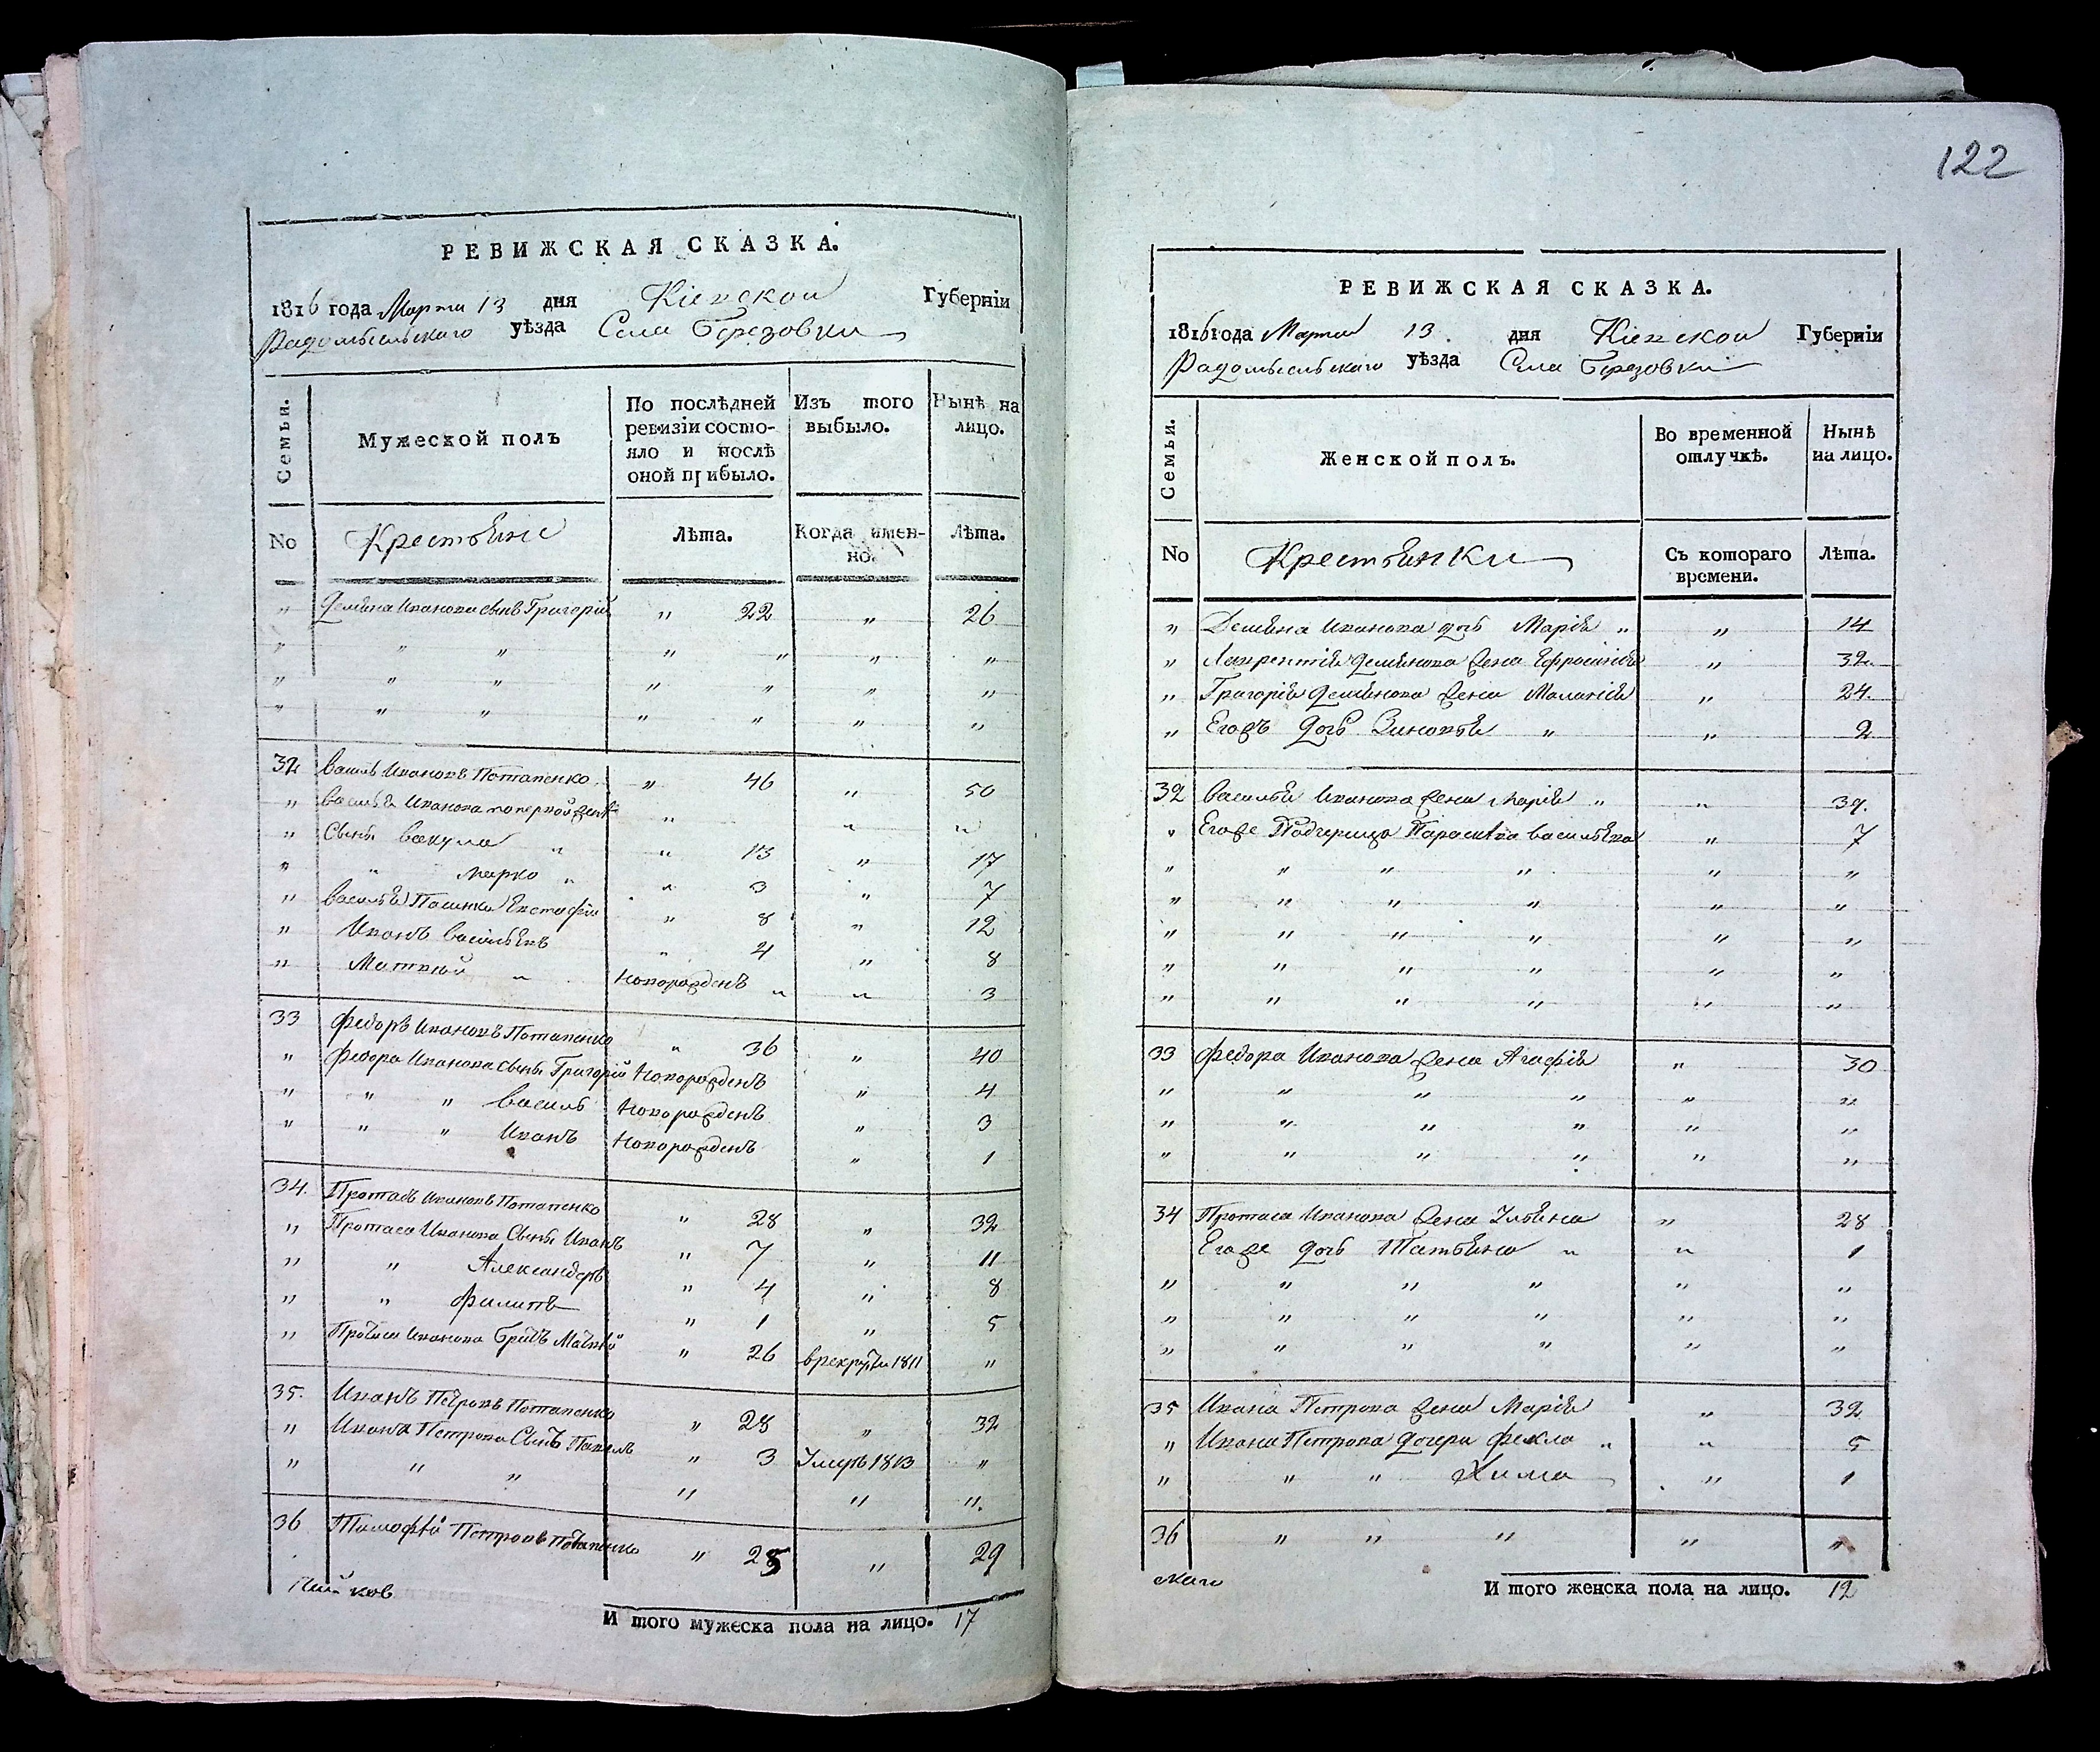 РЕВИЖСКАЯ СКАЗКА.
1816 года Марта 13 дня Кіевской Губерніи
Радомысльскаго уѣзда Села Березовки
Семьи. Мужеской полъ По послѣдней ревизіи состояло и послѣ оной прибыло. Изъ того выбыло. Нынѣ на лицо.
No Крестьяне Лѣта. Когда имен-но. Лѣта.
" Демьяна Иванова сынъ Григорій " 22 " 26
" " " " " " "
" " " " " " "
" " " " " " "
32 Василь Ивановъ Потапенко " 46 " 50
" Василья Иванова по первой женѣ " " "
" Сыны Вакула " " 13 " 17
" " Марко " " 3 " 7
" Василья Пасинки Евстафій " 8 " 12
" Иванъ Васильевъ " 4 " 8
" Матвѣй " Новорожденъ " " 3
33 Федоръ Ивановъ Потапенко " 36 " 40
" Федора Иванова сыны Григорій Новорожденъ " 4
" " " Василь Новорожденъ " 3
" " " Иванъ Новорожденъ " 1
34. Протасъ Ивановъ Потапенко " 28 " 32
" Протаса Иванова Сыны Иванъ " 7 " 11
" " Александръ " 4 " 8
" " Филипъ " 1 " 5
" Протаса Иванова Братъ Матвѣй " 26 в рекруты 1811 "
35. Иванъ Петровъ Потапенко " 28 " 32
" Ивана Петрова Сынъ Павелъ " 3 Умеръ 1813 "
" " " " " ".
36 Тимофѣй Петровъ Потапенко " 25 " 29
И того мужеска пола на лицо. 17
122
РЕВИЖСКАЯ СКАЗКА.
1816 года Марта 13 дня Кіевской Губерніи
Радомысльскаго уѣзда Села Березовки
Семьи. Женской полъ. Во временной отлучкѣ. Нынѣ на лицо.
No Крестьянки Съ котораго времени. Лѣта.
" Демьяна Иванова дочь Марія " " 14
" Лаврентія Демьянова жена Ефросинія " 32
" Григорія Демьянова жена Маланія " 24.
" Егожъ дочь Зиновья " " 2
32 Василья Иванова жена Марія " " 39.
" Егоже Падчерица Парасковія Васильева " 7
" " " " " "
" " " " " "
" " " " " "
" " " " " "
" " " " " "
33 Федора Иванова жена Агафія " 30
" " " " " "
" " " " " "
" " " " " "
34 Протаса Иванова жена Ульяна " 28
Егоже дочь Татьяна " " 1
" " " " " "
" " " " " "
" " " " " "
35 Ивана Петрова жена Марія " 32
" Ивана Петрова дочери Фекла " " 5
" " " Хима " 1
36 " " " " "
И того женска пола на лицо. 12